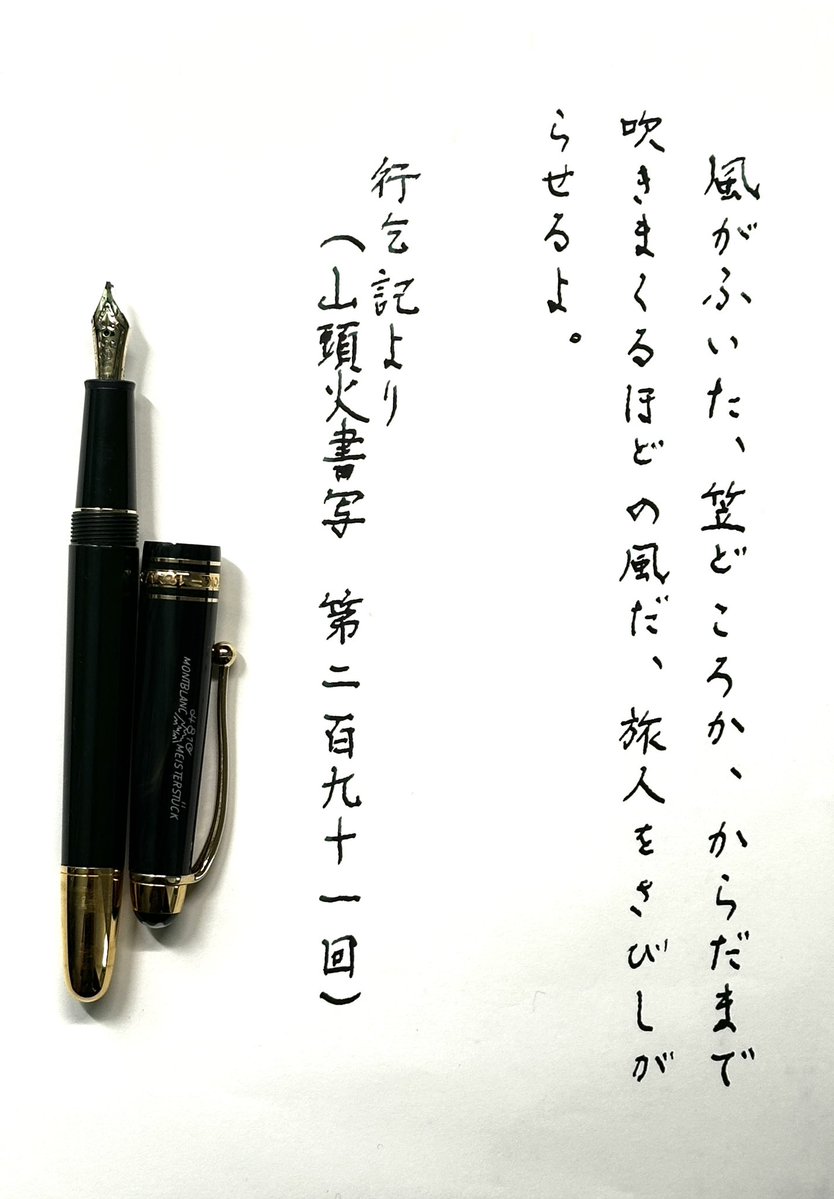 風がふいた、笠どころか、からだまで
吹きまくるほどの風だ、旅人をさびしが
らせるよ。
行乞記より
（山頭火書写　第二百九十一回）
MONTBLANC
MEISTERSTÜCK